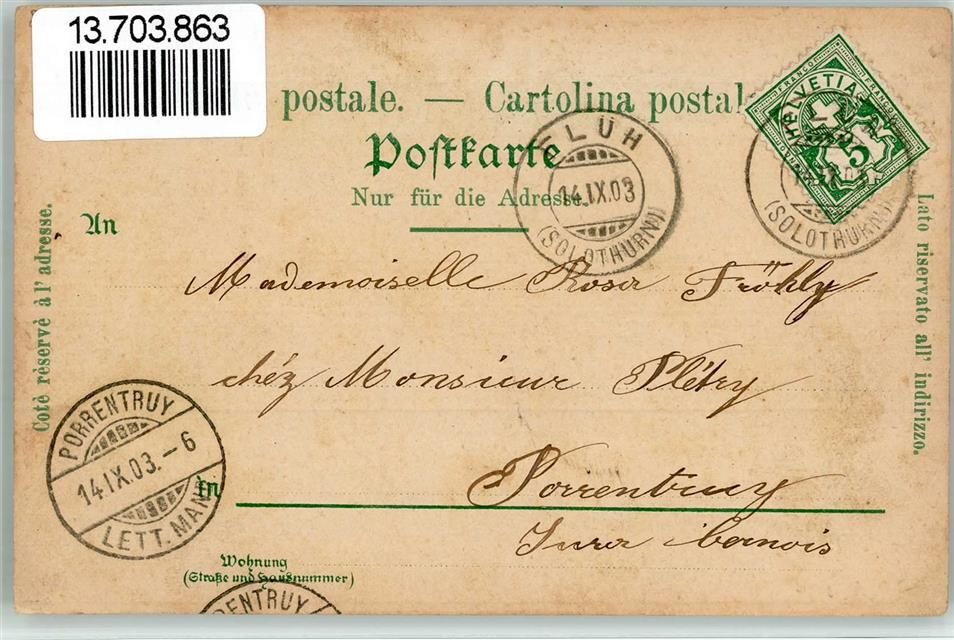 13.703.863
postale. — Cartolina postal
Postkarte
Nur für die Adresse.
An
FLÜH
14.IX.03
(SOLOTHURN)
FRANCO
HELVETIA
5
(SOLOTHURN)
Mademoiselle Rosa Fröhly
chéz Monsieur Plétry
Porrentruy
Jura bernois
Coté rèservè à l'adresse.
Lato riservato all' indirizzo.
PORRENTRUY
14.IX.03.-6
LETT. MAN
In
Wohnung
(Straße und Hausnummer)
RENTRUY